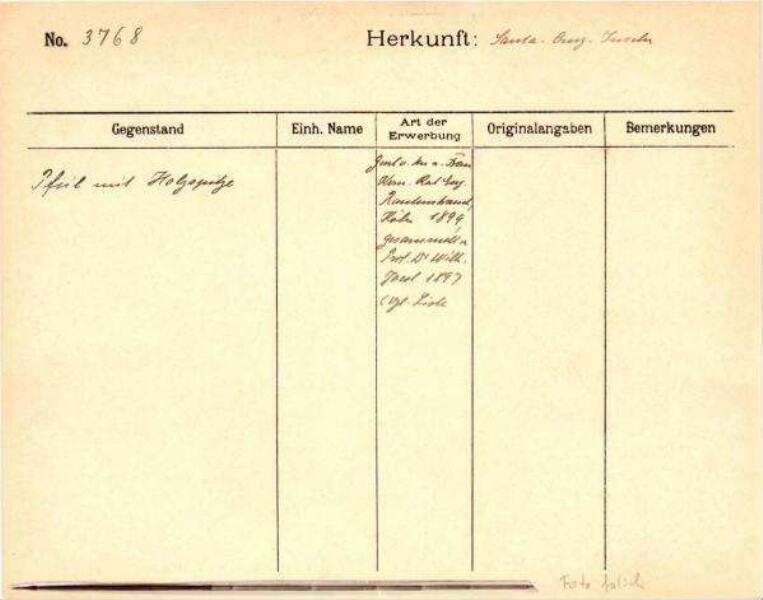 No. 3768 Herkunft: Santa-Cruz-Inseln
Gegenstand Einh. Name Art der Erwerbung Originalangaben Bemerkungen
Pfeil mit Holzspitze
Gesch. v. Frau
Kom. Rat Eug.
Rautenstrauch,
Köln 1899,
gesammelt v.
Prof. Dr Wilh.
Joest 1897
(Vgl. Liste
Foto falsch